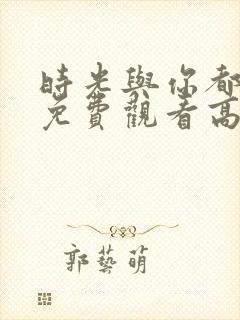 時光與你都
免費觀看高
郭藝萌